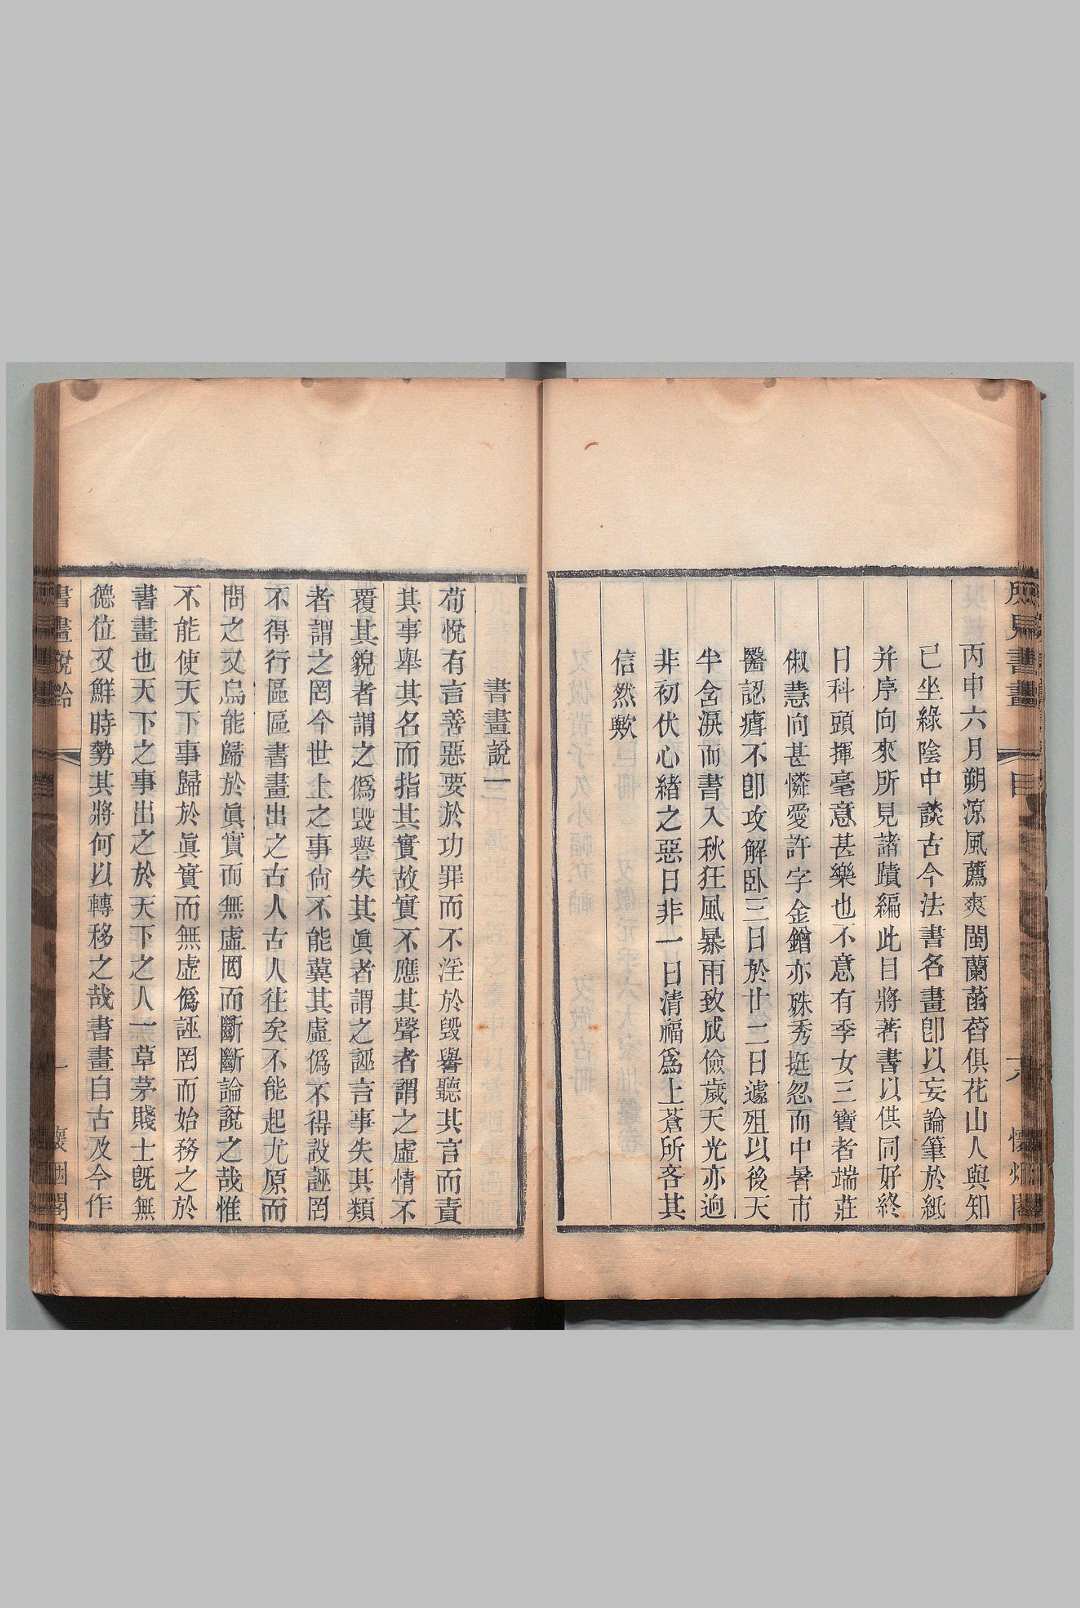 丙申六月朔涼風薦爽闔蘭菡萏俱花山人與知
己坐綠陰中談古今法書名畫卽以妄論筆於紙
并序向來所見諸蹟編此目將著書以供同好終
日科頭揮毫意甚樂也不意有季女三寶者端莊
俶慧向甚憐愛許字金鐕亦殊秀挺忽而中暑市
醫認瘴不卽攻解卧三日於廿二日遽殂以後天
半含淚而書入秋狂風暴雨致成儉歲天光亦迥
非初伏心緒之惡日非一日清福爲上蒼所吝其
信然歟
書畫說一
苟悅有言善惡要於功罪而不淫於毀譽聽其言而責
其事舉其名而指其實故實不應其聲者謂之虛情不
覆其貌者謂之僞毀譽失其眞者謂之誣言事失其類
者謂之罔今世上之事尙不能冀其虛僞不得設誣罔
不得行區區書畫出之古人古人往矣不能起尤原而
問之又烏能歸於眞實而無虛罔而斷斷論說之哉惟
不能使天下事歸於眞實而無虛僞誣罔而始務之於
書畫也天下之事出之於天下之人一草茅賤士旣無
德位又鮮時勢其將何以轉移之哉書畫自古及今作
書畫說鈴
一
懷烟閣